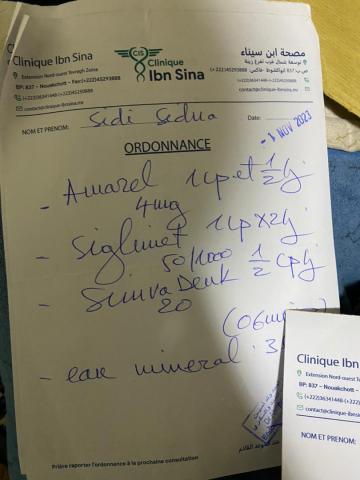 Clinique Ibn Sina
Extension Nord-ouest Tevragh Zeina
BP: 837 – Nouakchott – Fax:(+222)45293888
(+222)36341448-(+222)45293888
contact@clinique-ibnsina.mr
CIS
Clinique
Ibn Sina
مصحة ابن سيناء
توسعة شمال غرب تفرغ زينة
ص ب 837 انواكشوط -فاكس: 45293888(222+)
contact@clinique-ibnsina.mr
NOM ET PRENOM: Sidi Sedna
Date:
- 1 NOV 2023
ORDONNANCE
- Amarel 1cp et 1/2/j
4mg
- Siglimet 1cp x2/j
50/1000
- Simva Denk 1/2 cp/j
20
(06
- eau mineral : 3
Prière reporter l'ordonnance à la prochaine consultation
Clinique Ibn
Extension Nord-ouest Te
BP: 837 – Nouakchott –
(+222)36341448-(+222)
contact@clinique-ibnsin
NOM ET PRENOM: